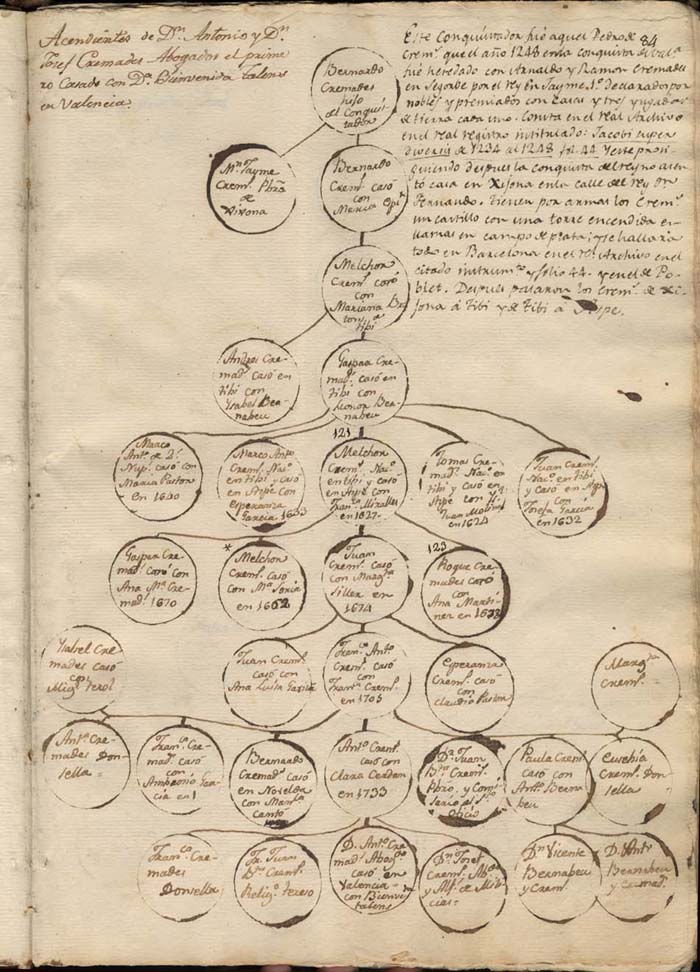 Acendientes de Dn. Antonio y Dn.
Josef Cremades Abogados el prime
ro Casado con Da. Bienvenida talens
en Valencia.
84
Este Conquistador fué aquel Pedro de
Crem.s que el año 1248 en la conquista de Val.a
fué heredado con Arnaldo y Ramon Cremades
en Segorbe por el rey Dn Jayme 1.º declarados por
nobles y premiados con Casas y tres yugadas
de tierra cada uno. Consta en el real Archivo
en el real registro intitulado: Jacobi super
diversis de 1234 al 1248 fol. 44. Y este prosi-
guiendo despues la conquista del reyno asen
tó casa en Xixona en la calle del rey Dn
Fernando. Tienen por armas los Crem.s
un castillo con una torre encendida en
llamas en campo de plata; y se hallará
todo en Barcelona en el rl. Archivo en el
citado instrum.to y folio 44 - y en el de Po-
blet. Despues pasaron los Crem.s de Xi-
xona á tibi y de tibi á Aspe.
Bernardo
Cremades
hijo
del Conquis-
tador
Mn Jayme
Crem.s Pbro
de
Xixona
Bernardo
Crem.s casó
con
Maria
Melchor
Crem.s casó
con
Mariana
tibi
Andres Cre-
mad.s casó en
tibi con
Ysabel Ber-
nabeu
Gaspar Cre-
mad.s casó en
tibi con
Leonor Ber-
nabeu
121
Marco
Ant.º de 2.s
Nup.s casó con
Maria Pastor
en 1630
Marco Ant.º
Crem.s Na.º
en tibi y casó
en Aspe con
Esperanza
Garcia 1633
Melchor
Crem.s Na.º
en tibi y casó
en Aspe con
Fran.ca Miralles
en 1627
Tomas Cre-
mad.s Na.º en
tibi y casó en
Aspe con
Juan
en 1624
Juan Crem.s
Na.º en tibi
y casó en Aspe
con
Josefa Garcia
en 1632
123
Gaspar Cre-
mad.s casó con
Ana M.a Cre-
mad.s 1670
*
Melchor
Crem.s casó
con M.a Soria
en 1662
Juan
Crem.s casó
con Marg.ta
Siller en
1674
Roque Cre-
mades casó
con
Ana Marti-
nez en
Ysabel Cre-
mades casó
con
Mig.l terol
Juan Crem.s
casó con
Ana Luisa Garcia
Fran.co Ant.º
Crem.s casó
con
Fran.ca Crem.s
en 1705
Esperanza
Crem.s casó
con
Claudio Pastor
Marg.ta
Crem.s
Ant.a Cre-
mades Don-
sella
Fran.ca Cre-
mad.s casó
con
Ambrosio Gar-
cia en 1
Bernardo
Cremad.s casó
en Novelda
con Mar.ta
Cantó
Ant.º Crem.s
casó con
Clara Cerdan
en 1733
Dr. Juan
Bta. Crem.s
Pbro. y Comi-
sario del St.º
Oficio
Paula Crem.s
casó con
Ant.º Berna
beu
Eusebia
Crem.s Don-
sella
Fran.ca Cre-
mades
Donsella
Fr. Juan
Bta. Crem.s
Relig.º
D. Ant.º Cre-
mad.s Abog.do
casó en
Valencia
con Bienve.da
talens
Dn. Josef
Crem.s
y
cias
Dn. Vicente
Bernabeu
y Crem.s
D. Ant.º
Bernabeu
y Cremad.s